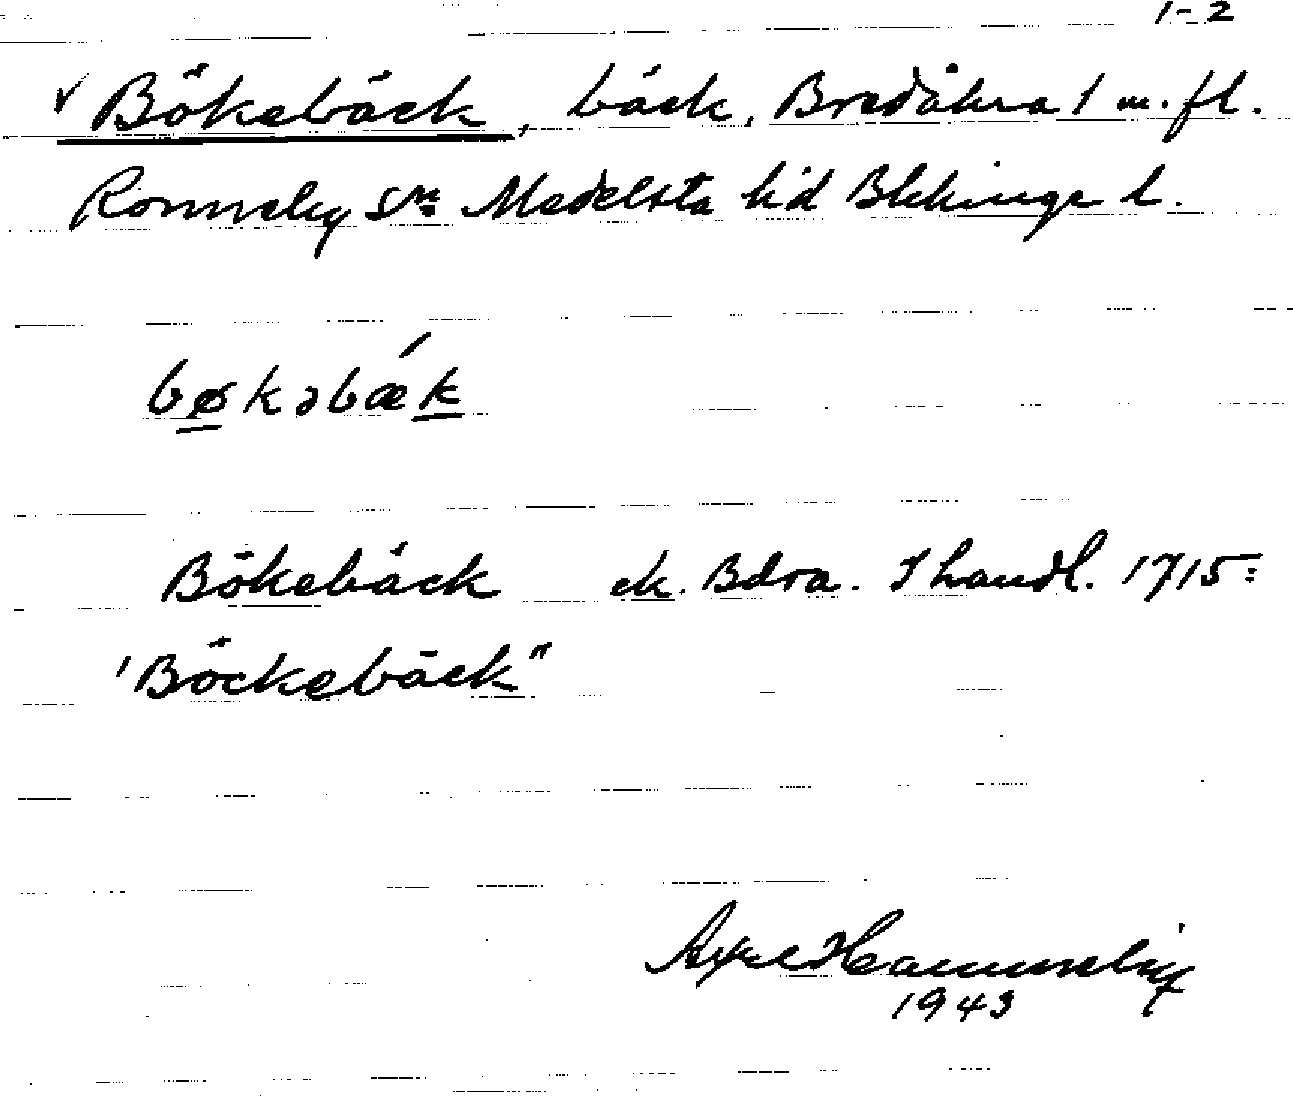 1-2
Bökebäck, bäck, Bredåkra 1 m. fl.
Ronneby sn Medelsta hd Blekinge l.
bøkəbæk
Bökebäck ek. Bdra. I handl. 1715:
"Böckebäck"
Axel
1943